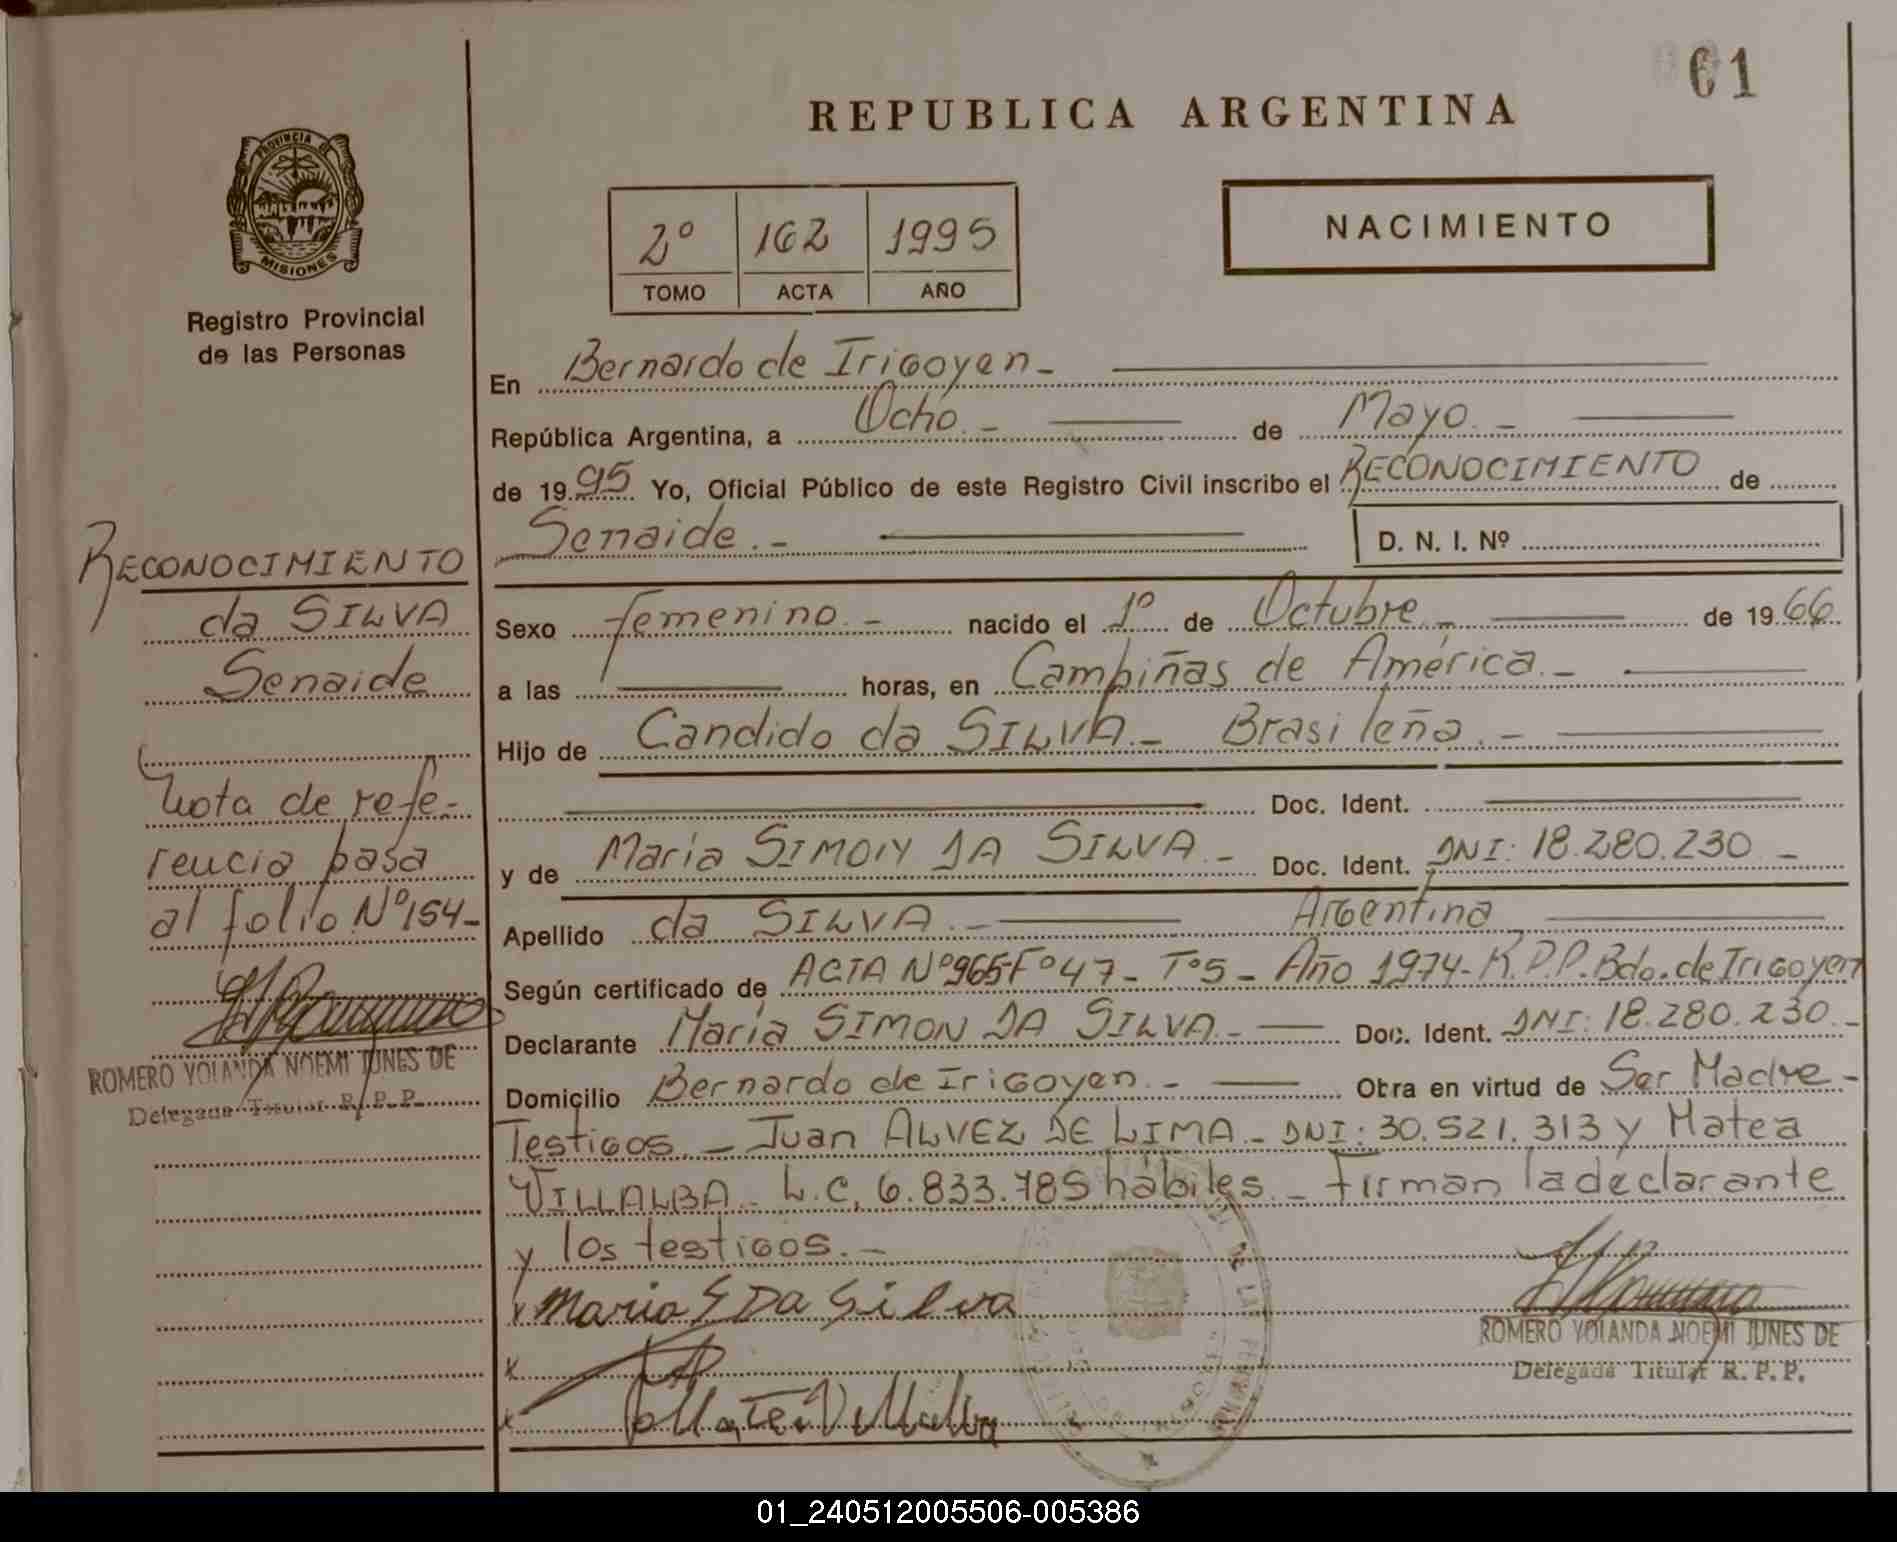 61
REPUBLICA ARGENTINA
PROVINCIA DE
MISIONES
Registro Provincial
de las Personas
2º 162 1995
TOMO ACTA AÑO
NACIMIENTO
En Bernardo de Irigoyen.-
República Argentina, a Ocho.- de Mayo.-
de 1995 Yo, Oficial Público de este Registro Civil inscribo el RECONOCIMIENTO de
Senaide.- D. N. I. Nº
RECONOCIMIENTO
da SILVA
Senaide
Nota de refe-
rencia pasa
al folio Nº154-
ROMERO YOLANDA NOEMI JUNES DE
Delegada Titular R. P. P.
Sexo femenino.- nacido el 1º de Octubre.- de 1966
a las horas, en Campiñas de América.-
Hijo de Candido da SILVA.- Brasileña.-
Doc. Ident.
y de María SIMON DA SILVA.- Doc. Ident. DNI: 18.280.230.-
Apellido da SILVA.- Argentina
Según certificado de ACTA Nº965-Fº47- Tº5- Año 1974- R.P.P. Bdo. de Irigoyen
Declarante María SIMON DA SILVA.- Doc. Ident. DNI: 18.280.230.-
Domicilio Bernardo de Irigoyen.- Obra en virtud de Ser Madre-
Testigos.- Juan ALVEZ DE LIMA- DNI: 30.521.313 y Matea
VILLALBA- L.C. 6.833.785 hábiles.- Firman la declarante
y los testigos.-
x Maria S Da Silva
x
x Matea Villalba
ROMERO YOLANDA NOEMI JUNES DE
Delegada Titular R. P. P.
01_240512005506-005386